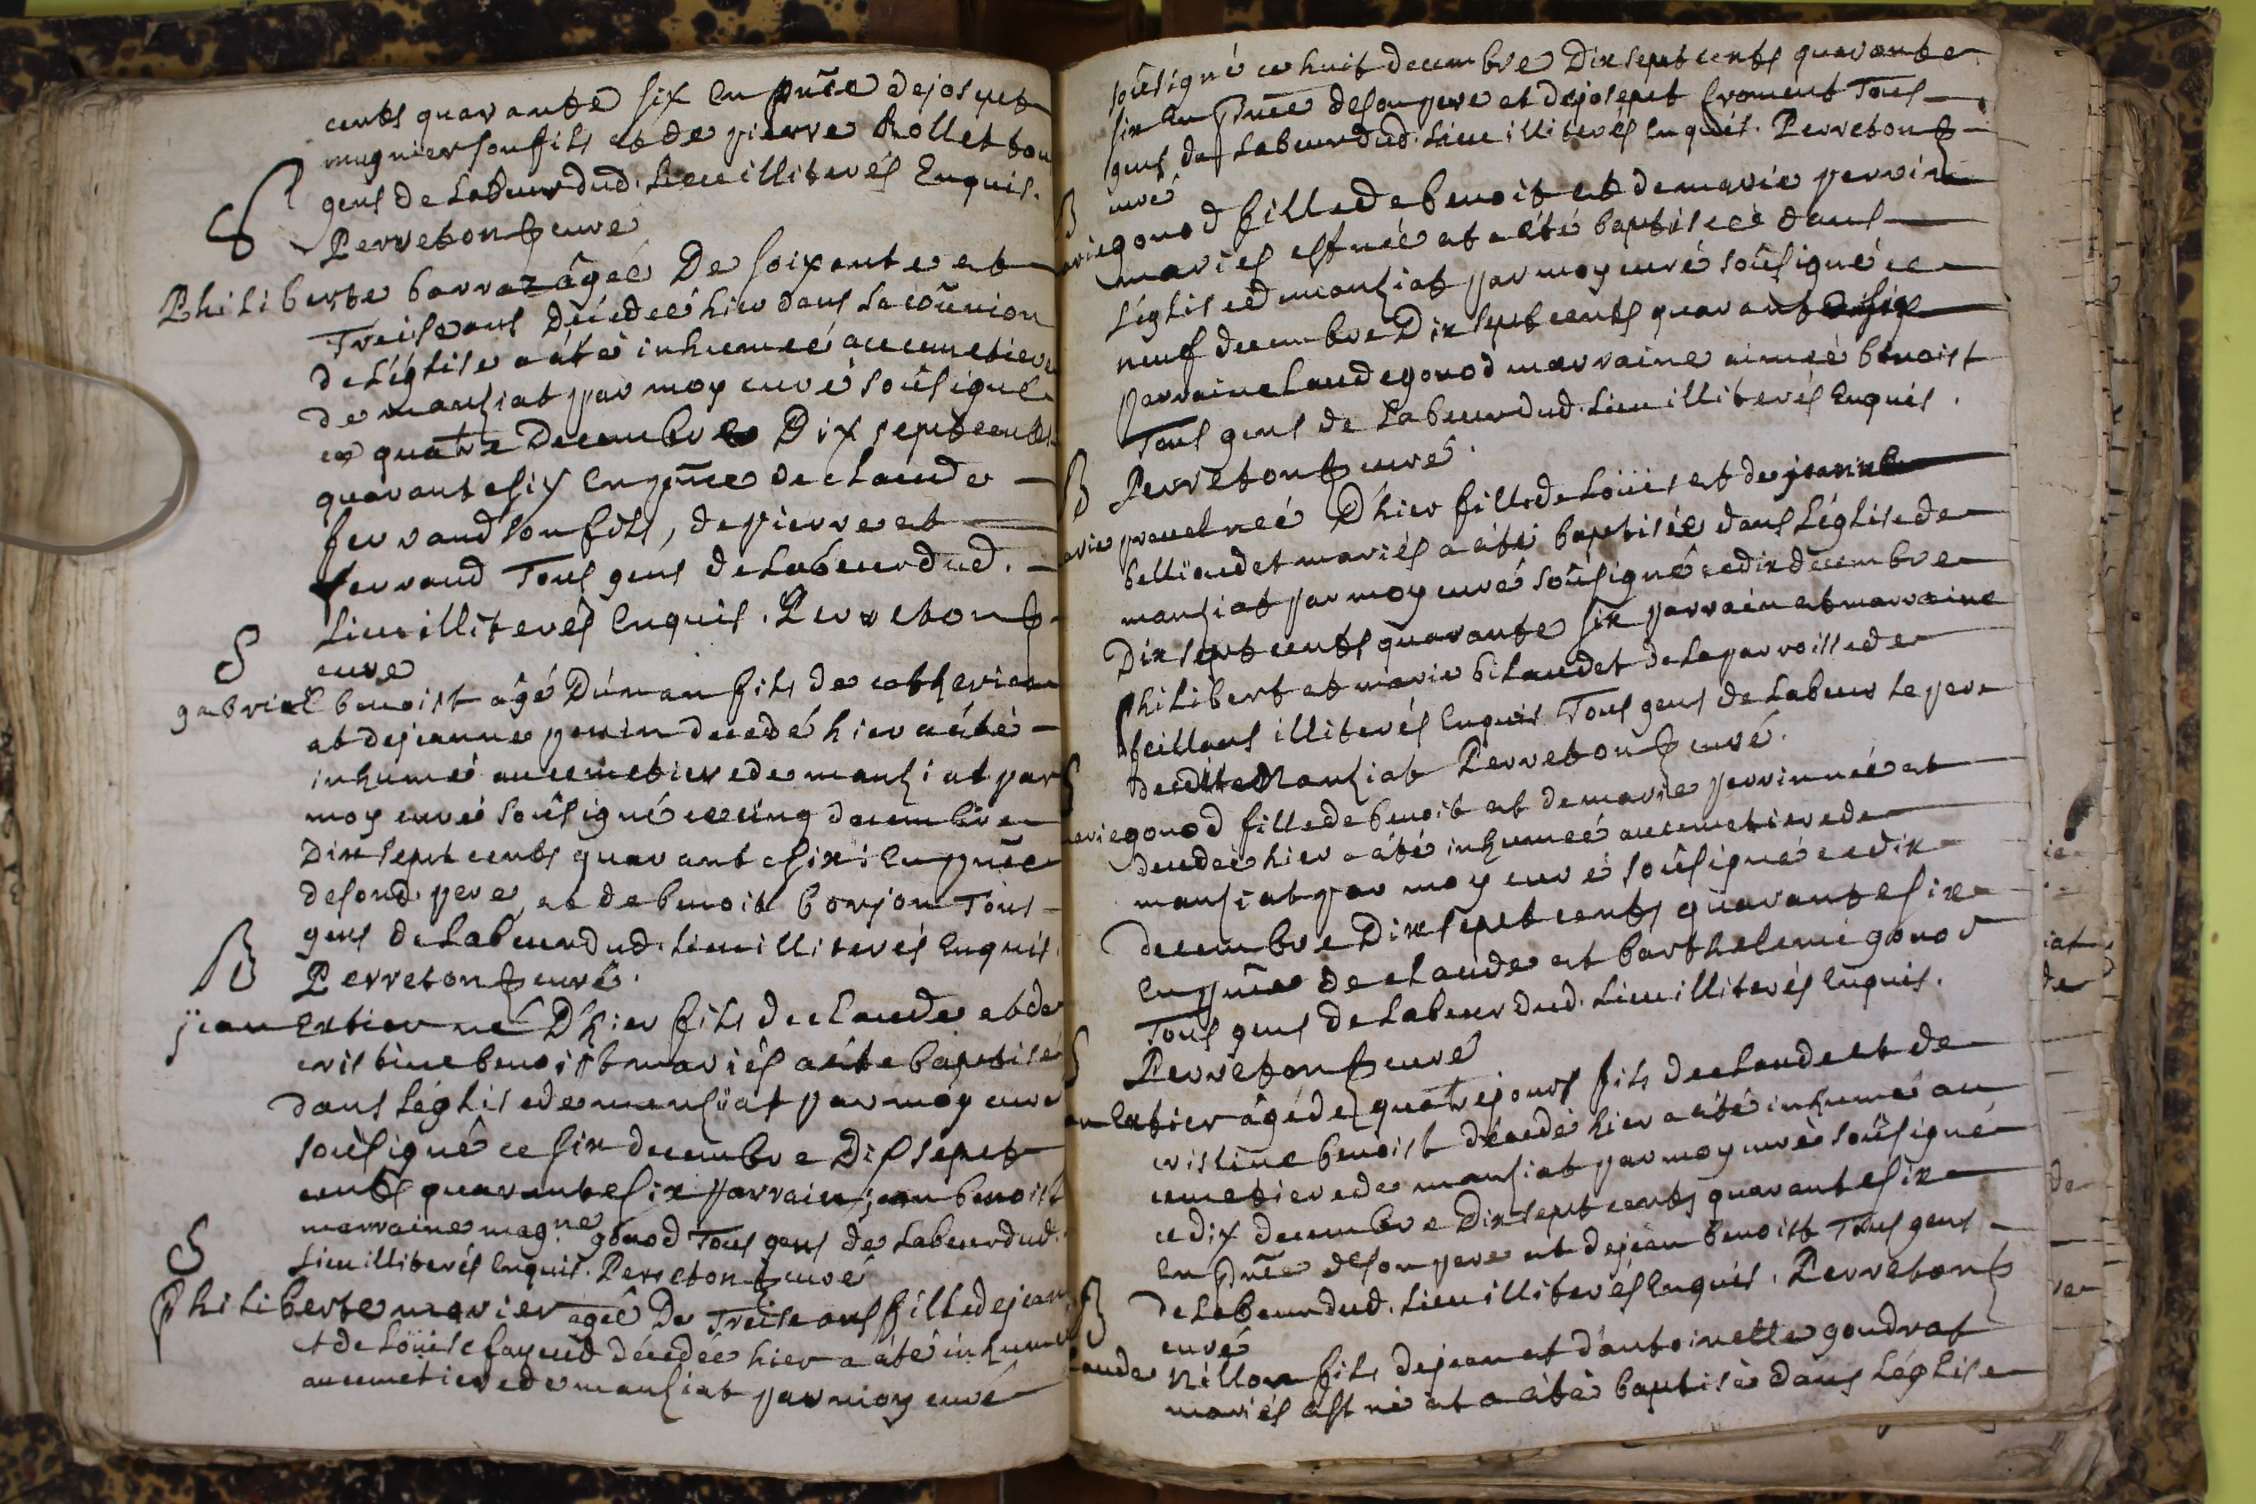 cents quarante six en pñce de josept
mugnier son fils et de pierre Rollet tou
gens de Labeur dud. Lieu illiterés Enquis.
S
Perreton curé
Philiberte borraz âgée De soixante et
Treise ans Décédeé hier dans La coñunion
de L'églis e a été inhumeé au cemetiere
de manziat par moy curé soûsigné
ce quatre Decembre Dix sept cents
quarante six En pñce de claude
ferrand son fils, de pierre et
ferrand Tous gens de Labeur dud.
Lieu illiterés Enquis. Perreton
S
curé
gabriel benoist âgé D'un an fils de catherine
et de jeanne perrin decedé hier a été
inhumé au cemetiere de manziat par
moy curé soûsigné ce cinq decembre
Dix sept cents quarante six: En pñce
de sond. pere, et de benoit borjon Tous
gens de Labeur dud. Lieu illiterés Enquis.
B
Perreton curé.
jean Extier né D'hier fils de claude et de
cristine benoist mariés a été baptisé
dans L'églis e de manziat par moy curé
soûsigné ce six decembre Dix sept
cents quarante six parrain jean benoist
marraine mag.ne gonod Tous gens de Labeur dud.
S
Lieu illiterés Enquis. Perreton curé
Philiberte marier ageé De Treise ans fille de jean
et de Loüise fayeud décedée hier a été inhumeé
au cemetiere de manziat par moy curé
soûsigné ce huit decembre Dix sept cents quarante
six En pñce de son pere et de josept froment Tous
gens de Labeur dud. Lieu illiterés Enquis. Perreton
curé
B
arie gonod fille de benoit et de marie perrin
mariés est née et a été baptiseé dans
L'églis e d manziat par moy curé soûsigné ce
neuf decembre Dix sept cents quarante six
parrain claude gonod marraine aimeé benoist
Tous gens de Labeur dud. Lieu illiterés Enquis.
B
Perreton curé.
arie preuel neé D'hier fille de Loüis et de jeanne
bellioudet mariés a été baptisée dans L'églis e de
manziat par moy curé soûsigné ce dix decembre
Dix sept cents quarante six parrain et marraine
philibert et marie bilaudet de La parroisse de
feillens illiterés Enquis Tous gens de Labeur Le pere
dudit Manziat Perreton curé.
S
arie gonod fille de benoit et de marie perrin née et
decedeé hier a été inhumeé au cemetiere de
manziat par moy curé soûsigné ce dix
decembre Dix sept cents quarante six
En pñce de claude et barthelemi gonod
Tous gens de Labeur dud. Lieu illiterés Enquis.
S
Perreton curé
an Extier âgé de quatre jours fils de claude et de
cristine benoist décedé hier a été inhumé au
cemetiere de manziat par moy curé soûsigné
ce dix decembre Dix sept cents quarante six
En pñce de son pere et de jean benoist Tous gens
de Labeur dud. Lieu illiterés Enquis. Perreton
B
curé
laude Nillon fils de jean et d'antoinette goudrat
mariés est né et a été baptisé dans L'églis e